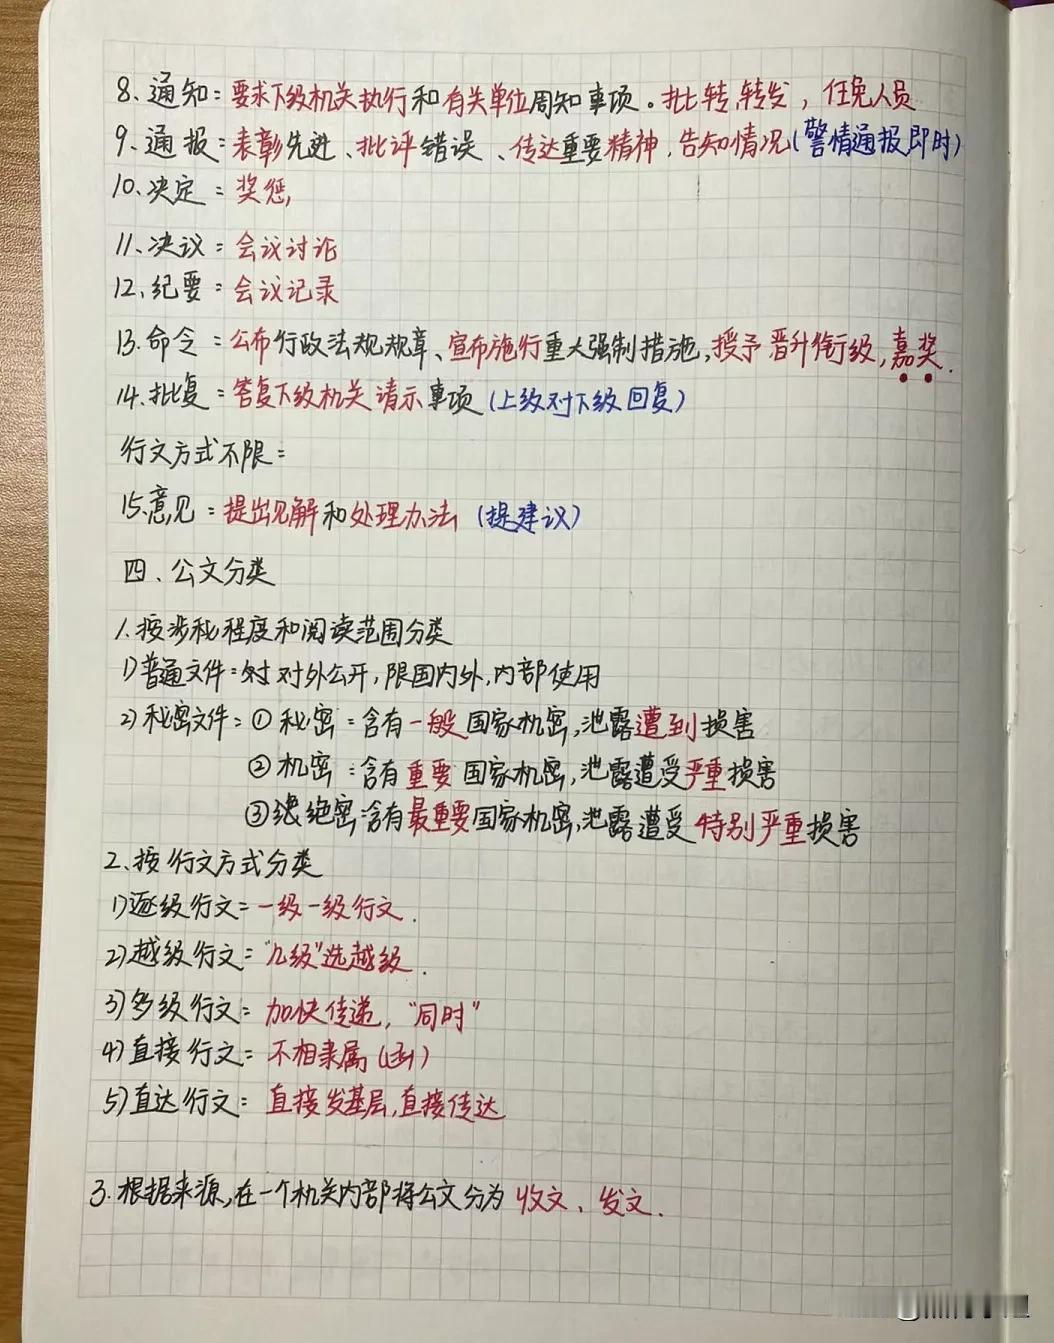 8、通知：要求下级机关执行和有关单位周知事项。批转、转发，任免人员
9、通报：表彰先进、批评错误、传达重要精神、告知情况(警情通报即时)
10、决定：奖惩,
11、决议：会议讨论
12、纪要：会议记录
13.命令：公布行政法规规章、宣布施行重大强制措施,授予晋升衔级,嘉奖.
14、批复：答复下级机关请示事项(上级对下级回复)
行文方式不限：
15、意见：提出见解和处理办法(提建议)
四、公文分类
1、按涉秘程度和阅读范围分类
1)普通文件：对外公开,限国内外,内部使用
2)秘密文件：①秘密：含有一般国家机密,泄露遭到损害
②机密：含有重要国家机密,泄露遭受严重损害
③绝密：含有最重要国家机密,泄露遭受特别严重损害
2、按行文方式分类
1)逐级行文：一级一级行文.
2)越级行文："几级"选越级.
3)多级行文：加快传递,"同时"
4)直接行文：不相隶属(函)
5)直达行文：直接发基层,直接传达
3.根据来源,在一个机关内部将公文分为收文、发文.